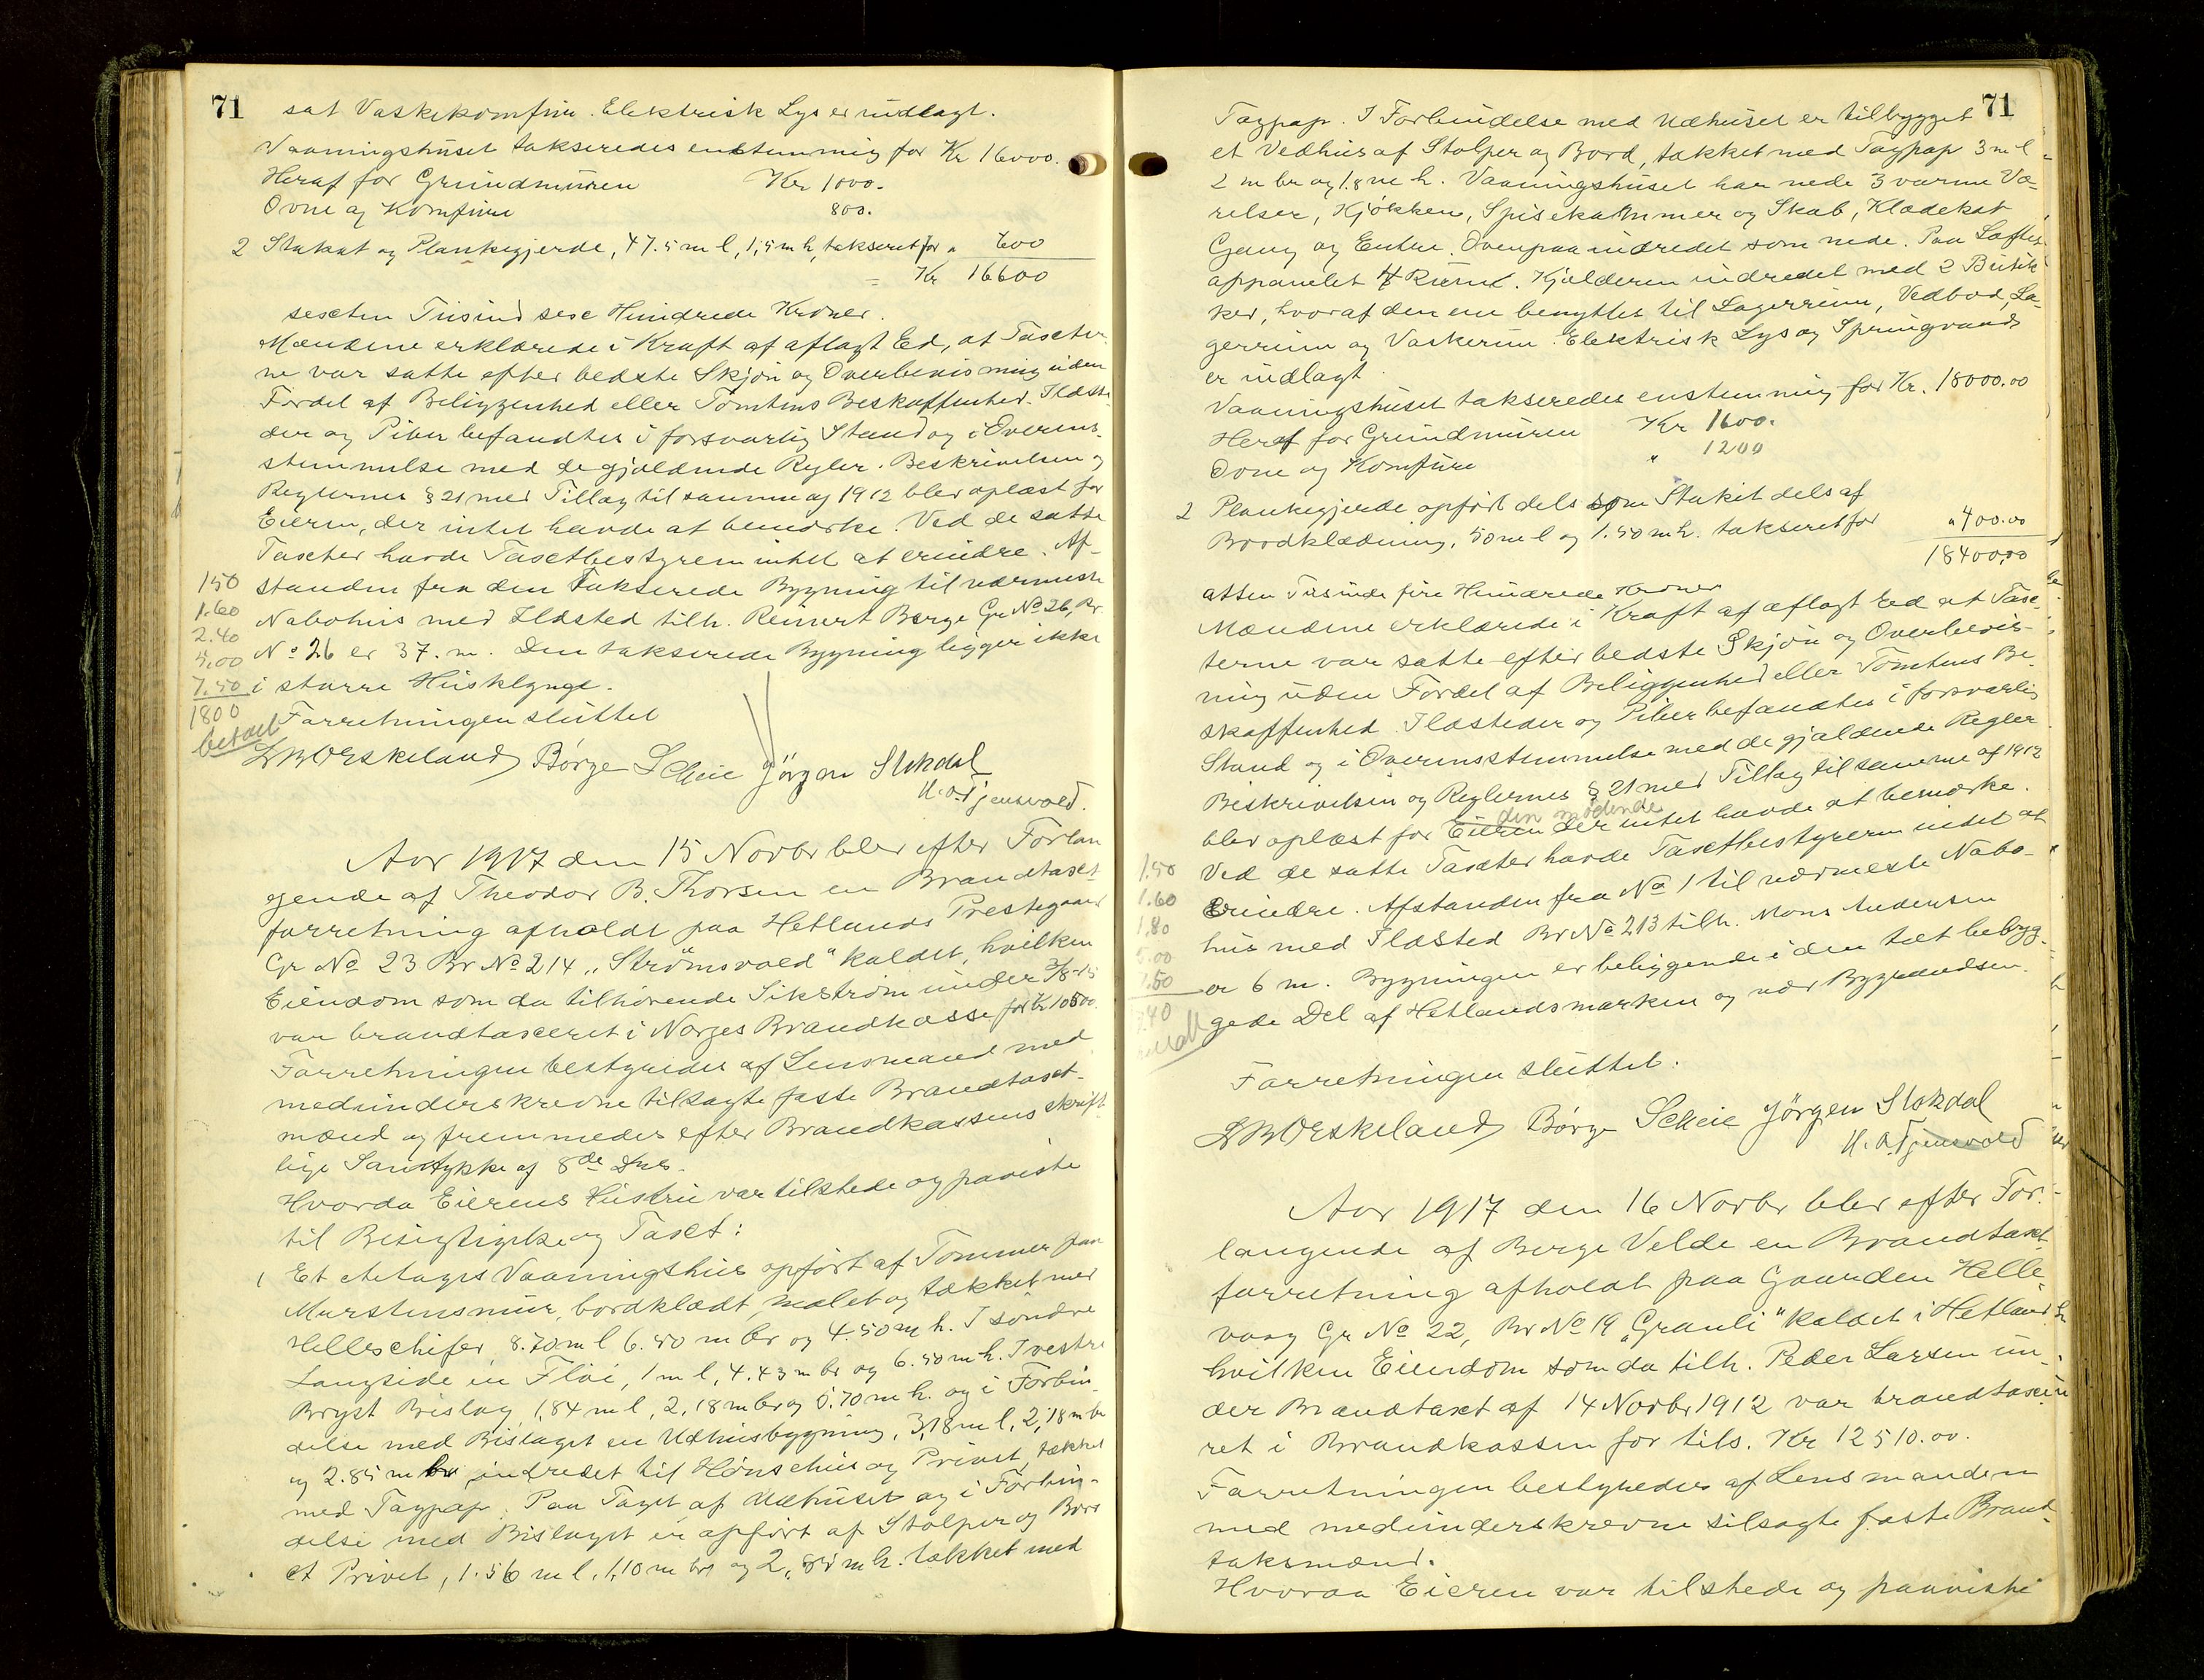 71
sat Vaskekomfur. Elektrisk Lys er indlagt.
Vaaningshuset takseredes enstemmig for Kr 16000.
Heraf for Grundmuren Kr 1000.
Ovne og Komfure 800.
2 Stakat og Plankegjerde, 47.5 m l, 1,5 m h, takseret for " 600
= Kr 16600
sexten Tusind sex Hundrede Kroner.
Mændene erklærede i Kraft af aflagt Ed, at Taxter-
ne var satte efter bedste Skjøn og Overbevisning uden
Fordel af Beliggenhed eller Tomtens Beskaffenhed. Ildste-
der og Piber befandtes i forsvarlig Stand og i Overens-
stemmelse med de gjældende Regler. Beskrivelsen og
Reglernes § 21 med Tillæg til samme af 1912 blev oplæst for
Eieren, der intet havde at bemærke. Ved de satte
Taxter havde Taxtbestyreren intet at erindre. Af-
standen fra den takserede Bygning til nærmeste
Nabohus med Ildsted tilh. Reinert Berge Gr No 26, Br.
No 26 er 37. m. Den takserede Bygning ligger ikke
i større Husklynge.
Forretningen sluttet
150
1.60
2.40
5.00
7.50
1800
betalt
L W Orskeland Børge Scheie Jørgen Stokdal
H. O. Tjensvold.
Aar 1917 den 15 Novbr blev efter Forlan
gende af Theodor B. Thorsen en Brandtaxt-
forretning afholdt paa Hetlands Prestegaard
Gr No 23 Br No 214 „Strømsvold" kaldet, hvilken
Eiendom som da tilhørende Sikstrøm under 3/8-15
var brandtaxeret i Norges Brandkasse for Kr 10500.
Forretningen bestyredes af Lensmand med
medunderskrevne tilsagte faste Brandtaxt-
mænd og fremmedes efter Brandkassens skrift-
lige Samtykke af 8de Ds.
Hvorda Eierens Hustru var tilstede og paaviste
til Besigtigelse og Taxt:
1 Et etetages Vaaningshus opført af Tømmer paa
Murstensmur, bordklædt, malet og tækket med
Helleschifer, 8.70 m l 6.50 m br og 4.50 m h. I søndre
Langside en Fløi, 1 m l, 4.43 m br og 6.50 m h. I vestre
Bryst Bislag, 1,84 m l, 2,18 m br og 5.70 m h. og i Forbin-
delse med Bislaget en Udhusbygning, 3,18 m l, 2,18 m br
og 2.85 m h indredet til Hønsehus og Privet, tækket
med Tagpap. Paa Taget af Udhuset og i Forbin-
delse med Bislaget er opført af Stolper og Bord
et Privet, 1.56 m l, 1,10 m br og 2,84 m h. tækket med
71
Tagpap. I Forbindelse med Udhuset er tilbygget
et Vedhus af Stolper og Bord, tækket med Tagpap 3 m l
2 m br og 1.8 m h. Vaaningshuset har nede 3 varme Væ-
relser, Kjøkken, Spisekammer og Skab, Klædekot
Gang og Entre. Ovenpaa indredet som nede. Paa Loftet
oppanelet 4 Rum. Kjælderen indredet med 2 Butik
ker, hvoraf den ene benyttet til Lagerrum, Vedbod, La-
gerrum og Vaskerum. Elektrisk Lys og Springvand
er indlagt.
Vaaningshuset takseredes enstemmig for Kr. 18000.00
Heraf for Grundmuren Kr 1600.
Ovne og Komfure " 1200
2 Plankegjerde opført dels som Stakit dels af
Bordklædning, 50 m l og 1.50 m h. takseret for " 400.00
18400,00
atten Tusinde fire Hundrede Kroner
Mændene erklærede i Kraft af aflagt Ed at Tax-
terne var satte efter bedste Skjøn og Overbevis-
ning uden Fordel af Beliggenhed eller Tomtens Be-
skaffenhed. Ildsteder og Piber befandtes i forsvarlig
Stand og i Overensstemmelse med de gjældende Regler.
Beskrivelsen og Reglernes § 21 med Tillæg til samme af 1912
den mødende
blev oplæst for Eieren der intet havde at bemærke.
Ved de satte Taxter havde Taxtbestyreren intet at
Erindre. Afstanden fra No 1 til nærmeste Nabo-
hus med Ildsted Br No 213 tilh. Mons Andersen
er 6 m. Bygningen er beliggende i den tæt bebyg-
gede Del af Hetlandsmarken og nær Bygrændsen.
1.50
1.60
1.80
5.00
7.50
Forretningen sluttet.
L W Orskeland Børge Scheie Jørgen Stokdal
H. O. Tjensvold
Aar 1917 den 16 Novbr blev efter For-
langende af Berge Velde en Brandtaxt-
forretning afholdt paa Gaarden Helle-
vaag Gr No 22, Br No 19 „Granli" kaldet i Hetland
hvilken Eiendom som da tilh. Peder Larsen un-
der Brandtaxt af 14 Novbr 1912 var brandtaxe-
ret i Brandkassen for tils. Kr 12510.00.
Forretningen bestyredes af Lensmanden
med medunderskrevne tilsagte faste Brand-
taksmænd.
Hvorda Eieren var tilstede og paaviste